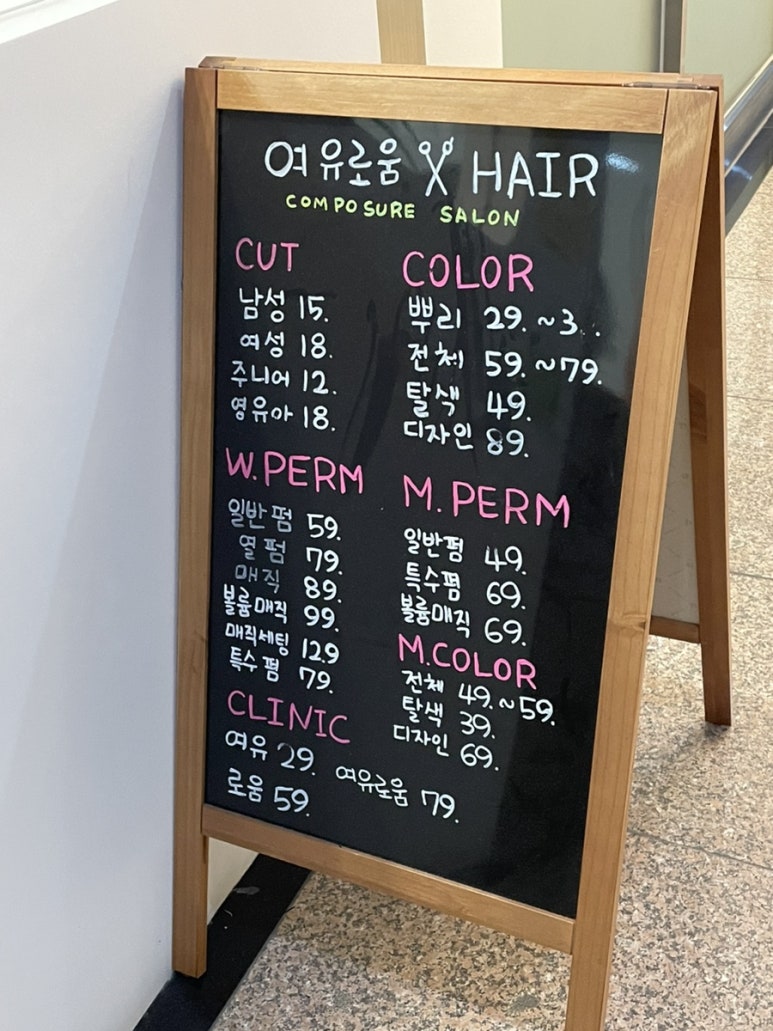 여유로움 HAIR
COMPOSURE SALON
CUT
남성 15.
여성 18.
주니어 12.
영유아 18.
COLOR
뿌리 29. ~
전체 59. ~79.
탈색 49.
디자인 89.
W.PERM
일반펌 59.
열펌 79.
매직 89.
볼륨매직 99.
매직세팅 12.9
특수펌 79.
M.PERM
일반펌 49.
특수펌 69.
볼륨매직 69.
M.COLOR
전체 49.~59.
탈색 39.
디자인 69.
CLINIC
여유 29.
로움 59.
여유로움 79.